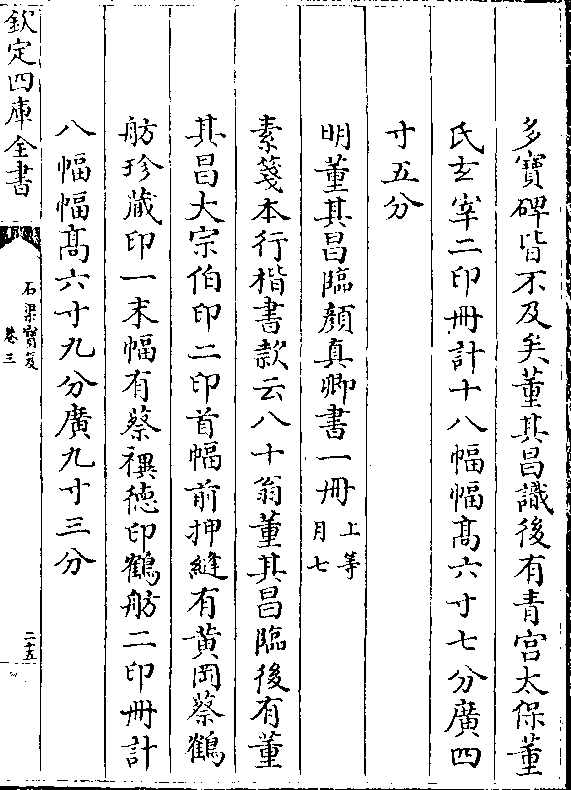 多寶碑皆不及矣董其昌識後有青宫太保董
氏玄宰二印冊計十八幅幅髙六寸七分廣四
寸五分
明董其昌臨顔真卿書一冊 上等 月七
素箋本行楷書款云八十翁董其昌臨後有董
其昌大宗伯印二印首幅前押縫有黄岡蔡鶴
舫珍蔵印一末幅有蔡禩徳印鶴舫二印冊計
八幅幅髙六寸九分廣九寸三分
欽定四庫全書
石渠寶笈
卷三
二十五